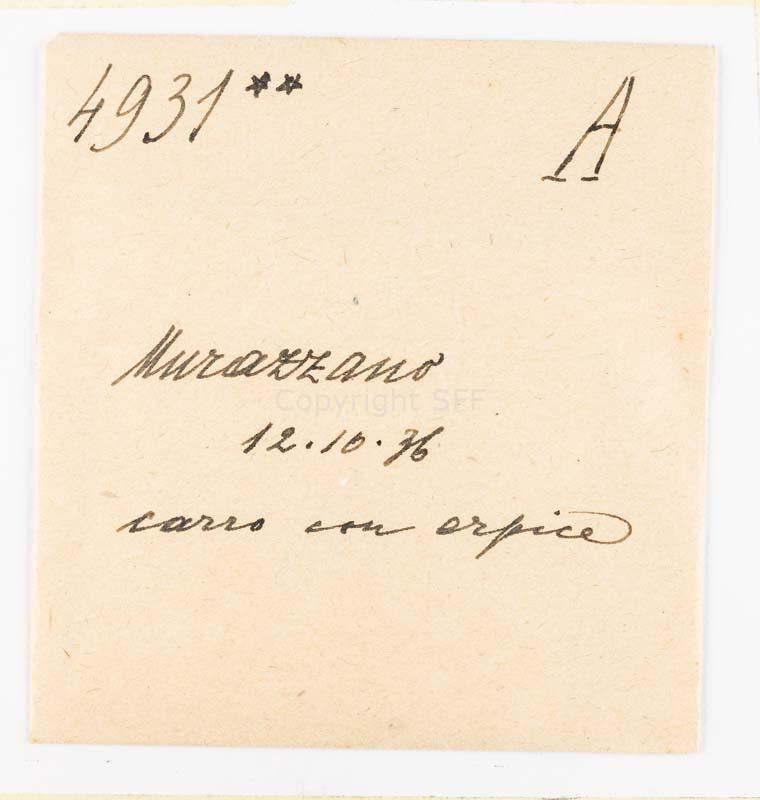 4931** A
Murazzano
Copyright SFF
12.10.36
carro con erpice